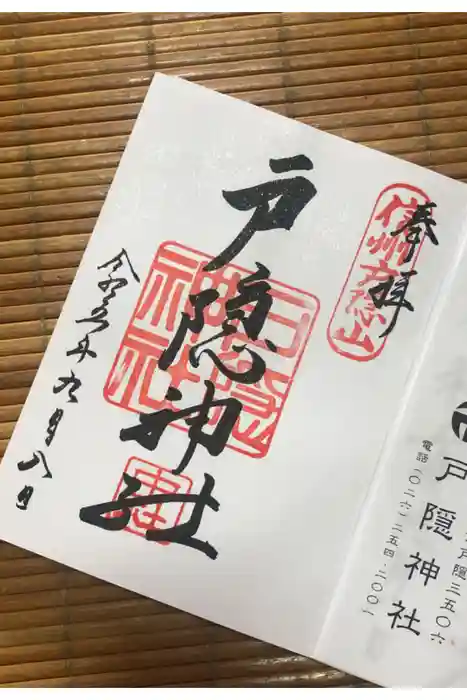 奉拝
信州戸隠山
戸隠神社
戸隠神社
令和五年九月八日
戸隠三五〇六
戸隠神社
電話(〇二六)二五四-二〇〇一